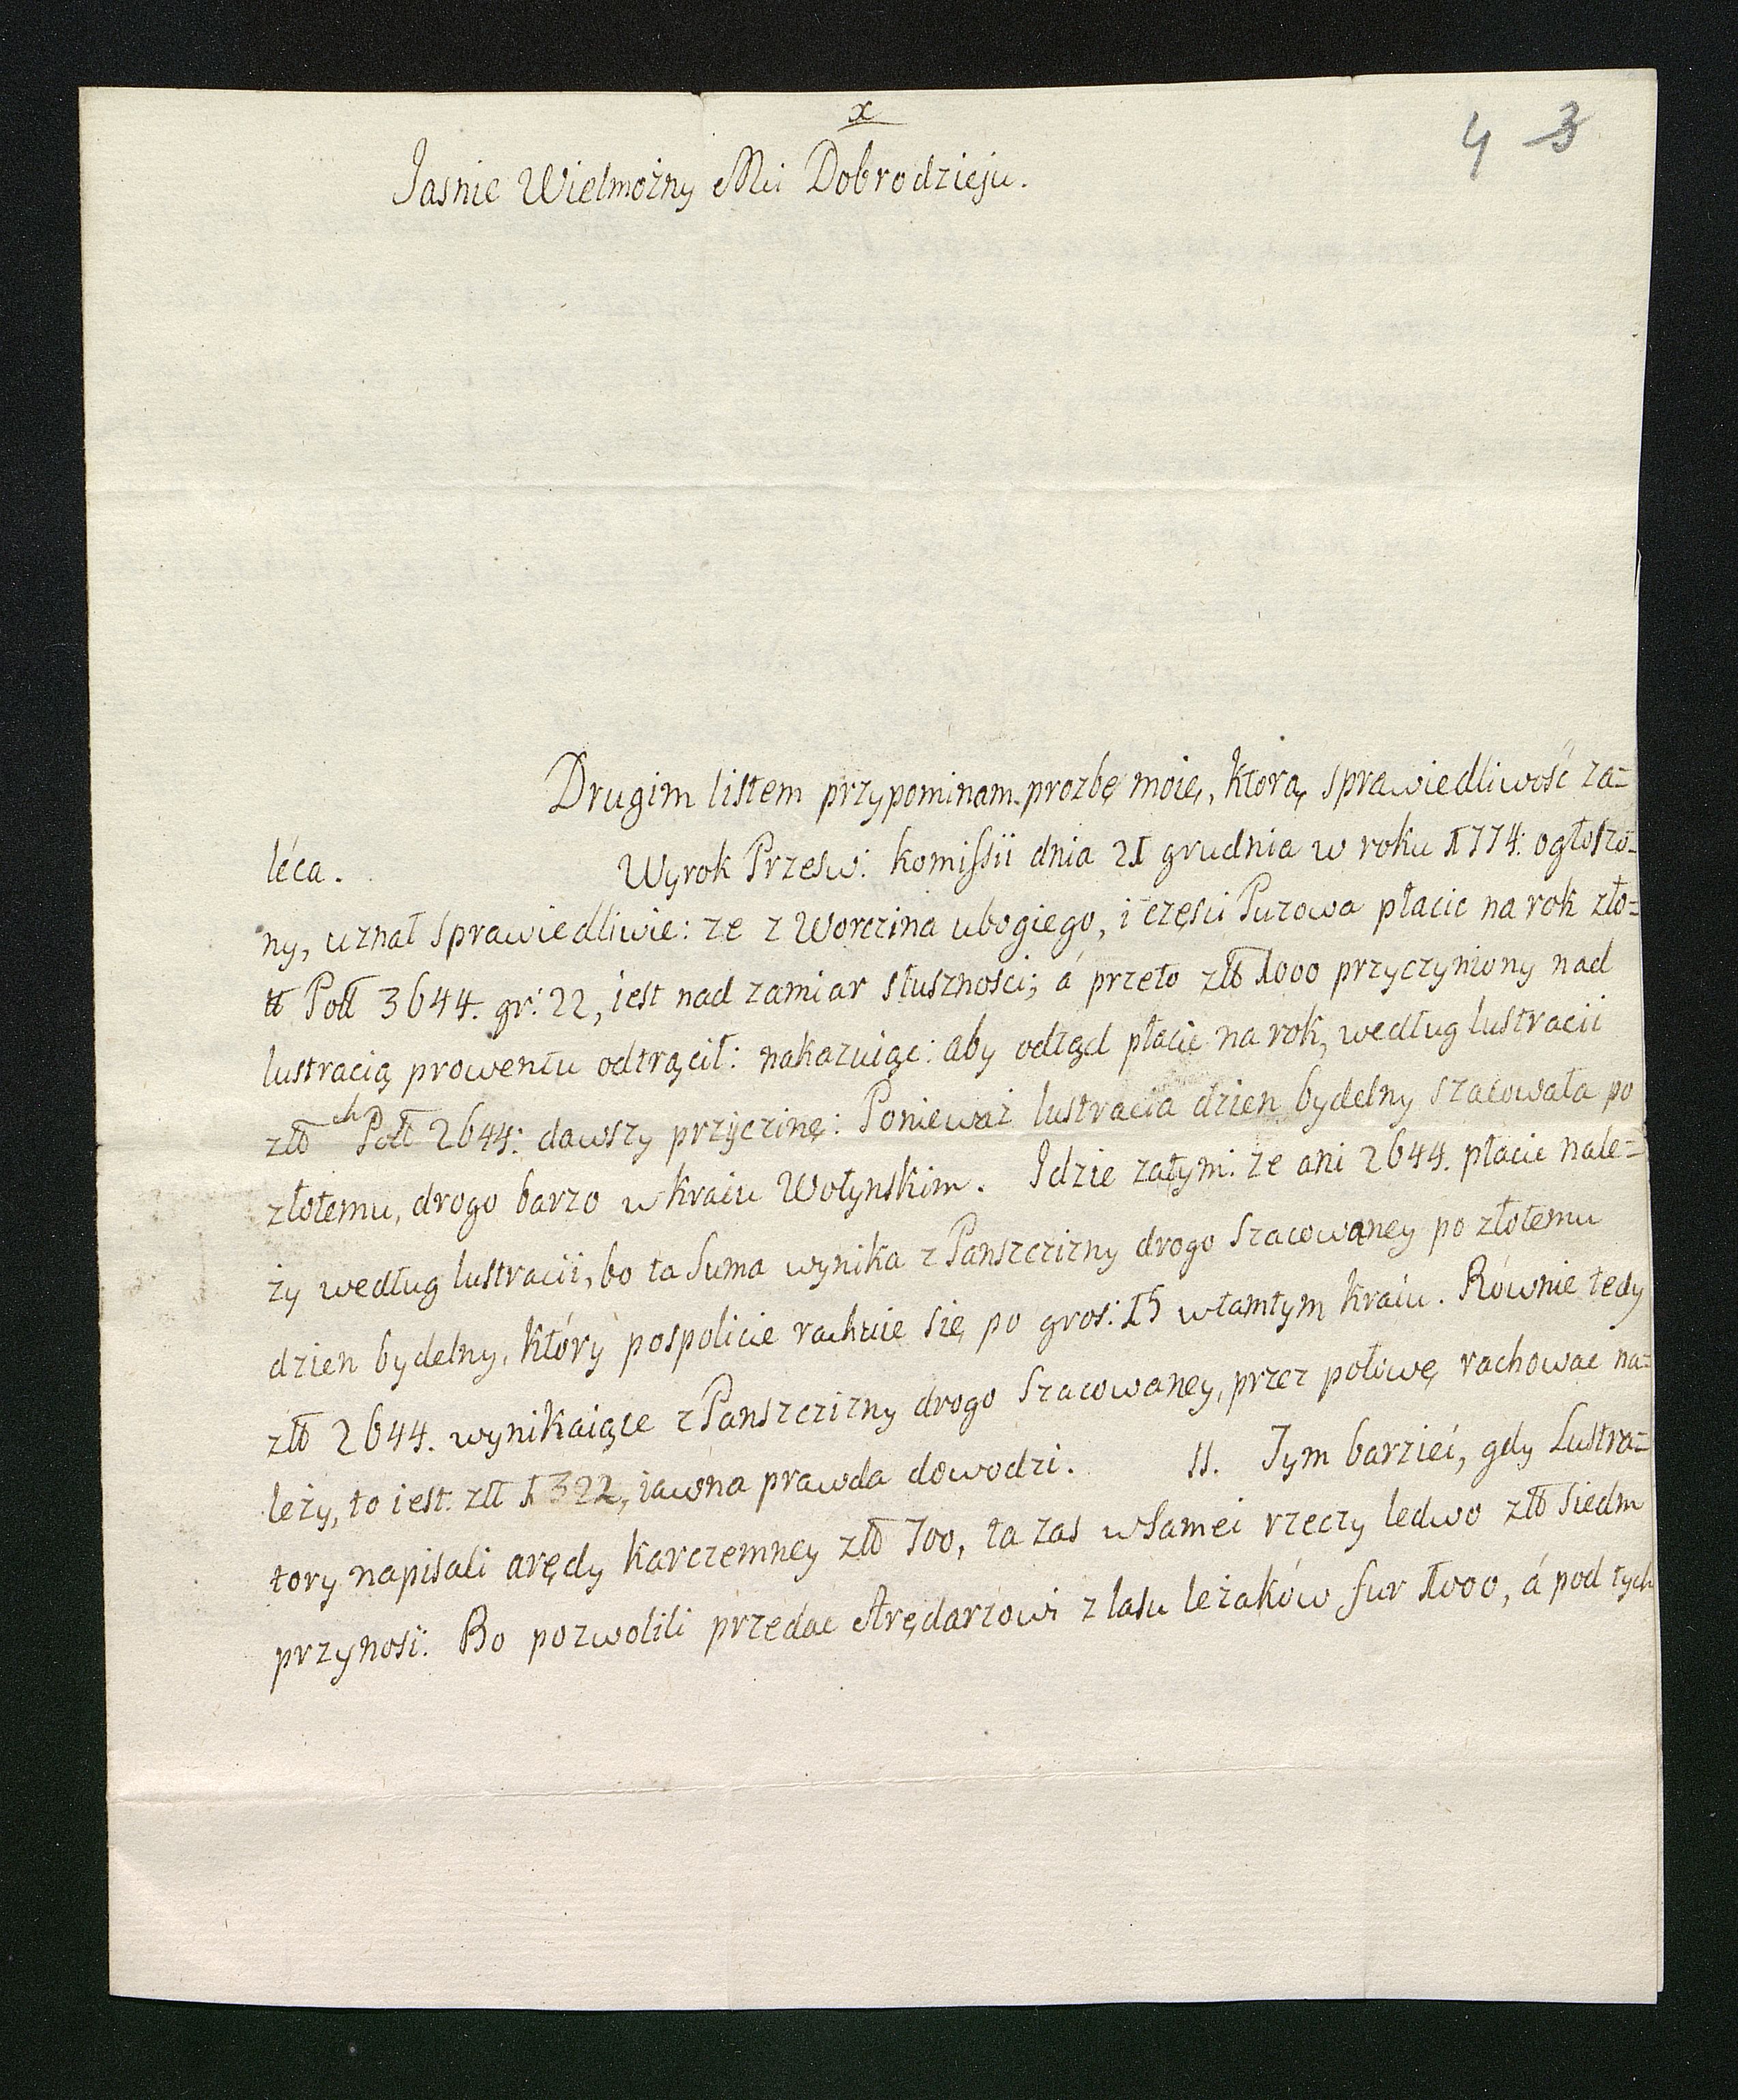 x
4 3
Jasnie Wielmożny Mći Dobrodzieju.
Drugim listem przypominam prozbę moię, ktorą sprawiedliwość za=
léca. Wyrok Przesw: komissii dnia 21 grudnia w roku 1774: ogłoszo=
ny, uznał sprawiedliwie: ze z Worczina ubogiego, i części Puzowa płacic na rok zło=
tt Poll 3644. gr: 22, iest nad zamiar słusznosci; á przeto złł 1000 przyczyniony nad
lustracią prowentu odtrącił: nakazuiąc: aby odtąd płacic na rok, według lustracii
złł ch Poll 2644: dawszy przyczinę: Ponieważ lustracia dzien bydelny szacowała po
złotemu, drogo barzo w kraiu Wołynskim. Idzie zatym: że ani 2644. płacic nale=
ży według lustracii, bo ta suma wynika z Panszczizny drogo szacowaney po złotemu
dzien bydelny, który pospolicie rachuie się po gros: 15 w tamtym kraiu. Równie tedy
złł 2644. wynikaiące z Panszczizny drogo szacowaney, przez połowę rachowac na=
leży, to iest. złł 1322, iawna prawda dowodzi. II. Tym barziei, gdy Lustra=
tory napisali arędy karczemney złł 700, ta zas w samei rzeczy ledwo złł siedm
przynosi. Bo pozwolili przedac Arędarzowi z lasu leżaków fur 1000, á pod tych